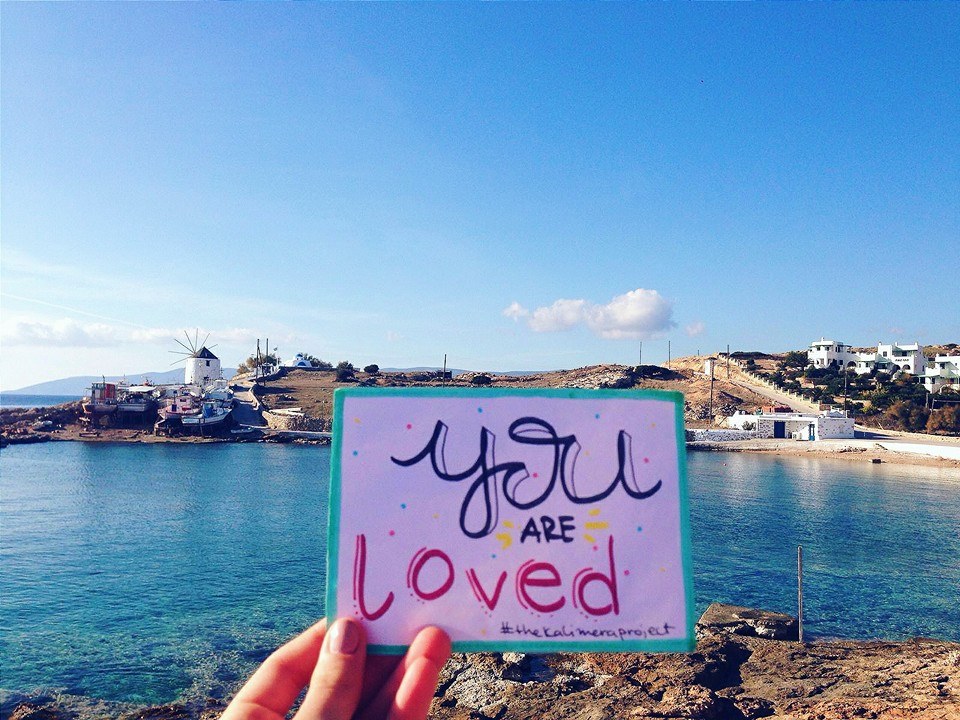 you
ARE
loved
#thekalimeraproject